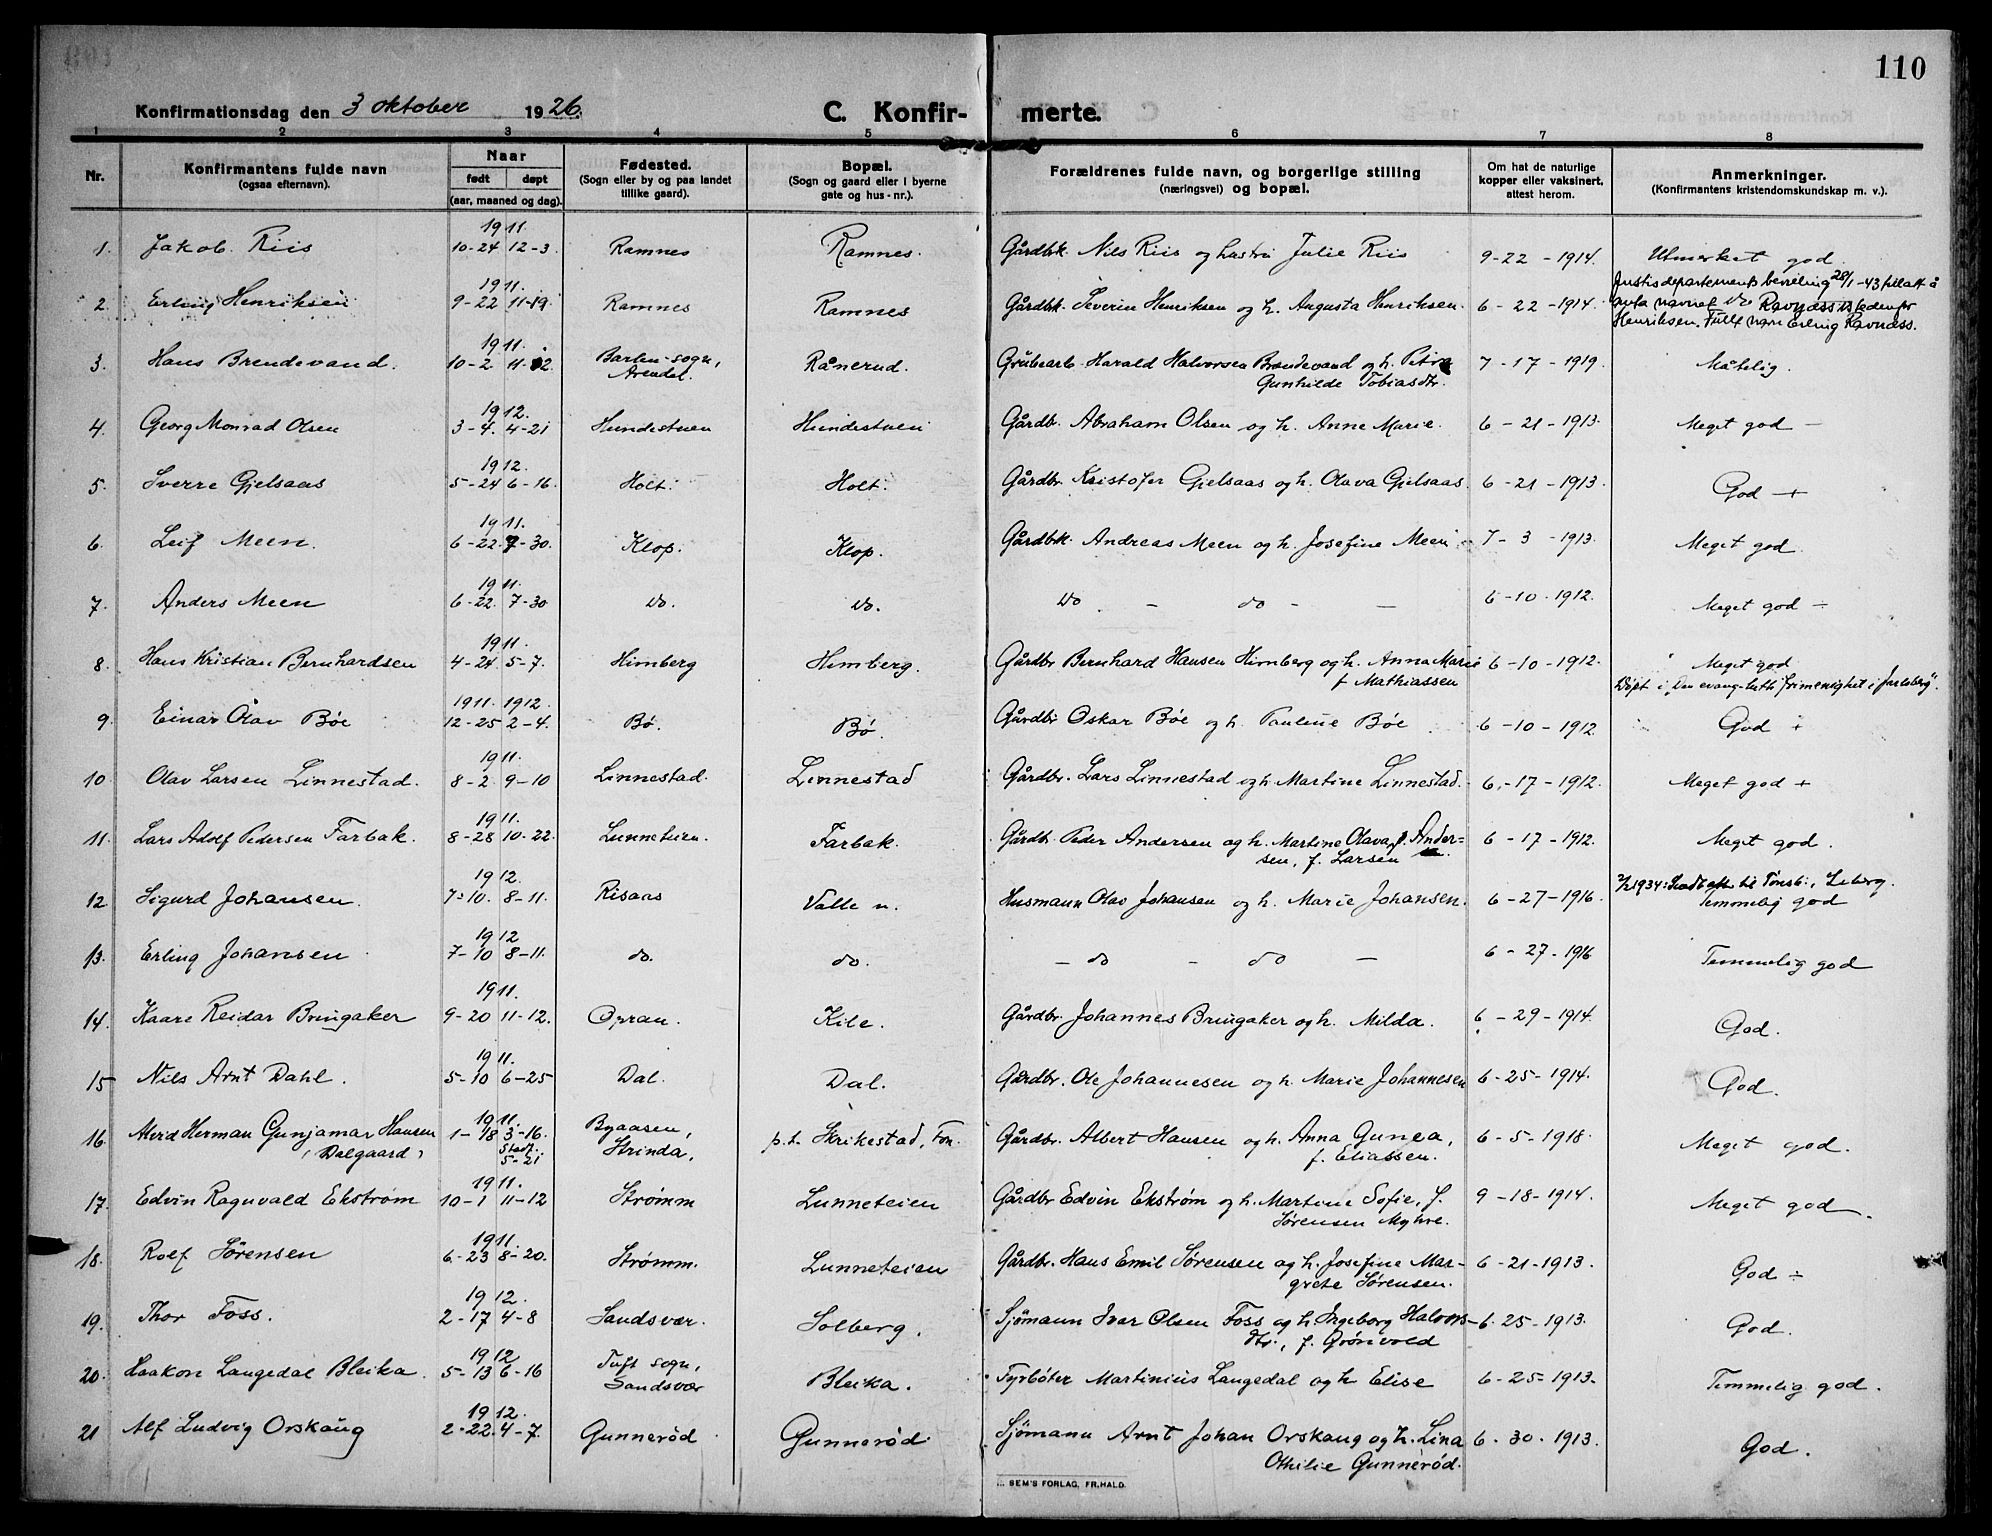 110
Konfirmationsdag den 3 oktober 1926. C. Konfir- merte.
1 2 3 4 5 6 7 8
Nr. Konfirmantens fulde navn (ogsaa efternavn). Naar født døpt (aar, maaned og dag). Fødested. (Sogn eller by og paa landet tillike gaard). Bopæl. (Sogn og gaard eller i byerne gate og hus-nr.). Forældrenes fulde navn, og borgerlige stilling (næringsvei) og bopæl. Om hat de naturlige kopper eller vaksinert, attest herom. Anmerkninger. (Konfirmantens kristendomskundskap m. v.).
1911.
1. Jakob Riis 10-24 12-3 Ramnes Ramnes. Gårdbk. Nils Riis og hustru Julie Riis 9-22-1914. Utmerket god
1911. Justisdepartements bevilling 28/1-43 tillatt å
2. Erling Henriksen 9-22 11-19 Ramnes Ramnes Gårdbk. Severin Henriksen og h. Augusta Henriksen. 6-22-1914. anta navnet Ravnæss istedenfor
Henriksen. Fullt navn Erling Ravnæss.
1911.
3. Hans Brendevand. 10-2 11-12 Barbu sogn, Rånerud. Grubearb. Harald Halvorsen Brændevand og h. Petra 7-17-1919. Måtelig.
Arendal. Gunhilde Tobiasdtr.
1912.
4. Georg Monrad Olsen 3-4. 4-21 Hundestuen Hundestuen Gårdbr. Abraham Olsen og h. Anne Marie. 6-21-1913. Meget god -
1912.
5. Sverre Gjelsaas 5-24 6-16. Holt. Holt. Gårdbr. Kristofer Gjelsaas og h. Olava Gjelsaas. 6-21-1913. God +
1911.
6. Leif Meen. 6-22. 7-30. Klop. Klop. Gårdbk. Andreas Meen og h. Josefine Meen 7-3-1913. Meget god.
1911.
7. Anders Meen 6-22. 7-30 do. do. do - do - - 6-10-1912. Meget god ÷
1911.
8. Hans Kristian Bernhardsen 4-24 5-7. Himberg Himberg. Gårdbr Bernhard Hansen Himberg og h. Anna Marie 6-10-1912. Meget god
f Mathiassen Døpt i "Den evang-luth. frimenighet i Jarlsberg".
1911. 1912.
9. Einar Olav Bøe 12-25 2-4. Bø. Bø. Gårdbr Oskar Bøe og h. Pauline Bøe 6-10-1912 God +
1911.
10. Olav Larsen Linnestad. 8-2. 9-10 Linnestad. Linnestad Gårdbr. Lars Linnestad og h. Martine Linnestad. 6-17-1912. Meget god +
1911.
11. Lars Adolf Pedersen Farbak. 8-28 10-22. Lunneteien. Farbak. Gårdbr. Peder Andersen og h. Martine Olava, f. Ander-
sen, f. Larsen 6-17-1912. Meget god.
1912.
12 Sigurd Johansen. 7-10. 8-11. Risaas Valle n. Husmann Olav Johansen og h. Marie Johansen. 6-27-1916. Temmelig god
1912
13. Erling Johansen 7-10 8-11. do. do. - do - do - 6-27-1916 Temmelig god
1911.
14. Kaare Reidar Bringaker 9-20 11-12. Opran. Kile. Gårdbr. Johannes Bringaker og h. Milda. 6-29-1914. God.
1911.
15 Nils Arnt Dahl. 5-10 6-25 Dal. Dal. Gårdbr. Ole Johannesen og h. Marie Johannesen 6-25-1914. God.
1911.
16. Alvid Herman Gunjamar Hansen 1-18 3-16. Byaasen, p.t. Skrikestad, Fon. Gårdbr. Albert Hansen og h. Anna Gunea, 6-5-1918. Meget god.
(Dalgaard) Stadf. 5-21 Strinda, f. Eliassen.
1911.
17. Edvin Ragnvald Ekstrøm 10-1 11-12 Strømm Lunneteien Gårdbr Edvin Ekstrøm og h. Martine Sofie, f. 9-18-1914. Meget god.
Sørensen Myhre.
1911.
18. Rolf Sørensen 6-23 8-20. Strømm. Lunneteien Gårdbr. Hans Emil Sørensen og h. Josefine Mar- 6-21-1913. God ÷
grete Sørensen.
1912.
19. Thor Foss. 2-17 4-8 Sandsvær. Solberg. Sjømann Ivar Olsen Foss og h Ingeborg Halvors- 6-25-1913. God.
dtr., f. Grønvold
1912
20. Haakon Langedal Bleika. 5-13 6-16 Tuft sogn, Bleika. Fyrbøter Martinius Langedal og h Elise 6-25-1913. Temmelig god.
Sandsvær
1912.
21 Alf Ludvig Orskaug 2-22. 4-7. Gunnerød Gunnerød Sjømann Arnt Johan Orskaug og h. Lina 6-30-1913. God.
Othilie Gunnerød.
SEM'S FORLAG, FR.HALD.